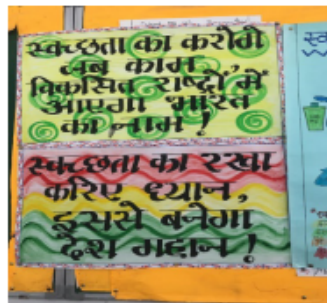 स्वच्छता का करोगे
जब काम,
विकसित राष्ट्रों में
आएगा भारत
का नाम !
स्वच्छता का रखा
करिए ध्यान,
इससे बनेगा
देश महान !